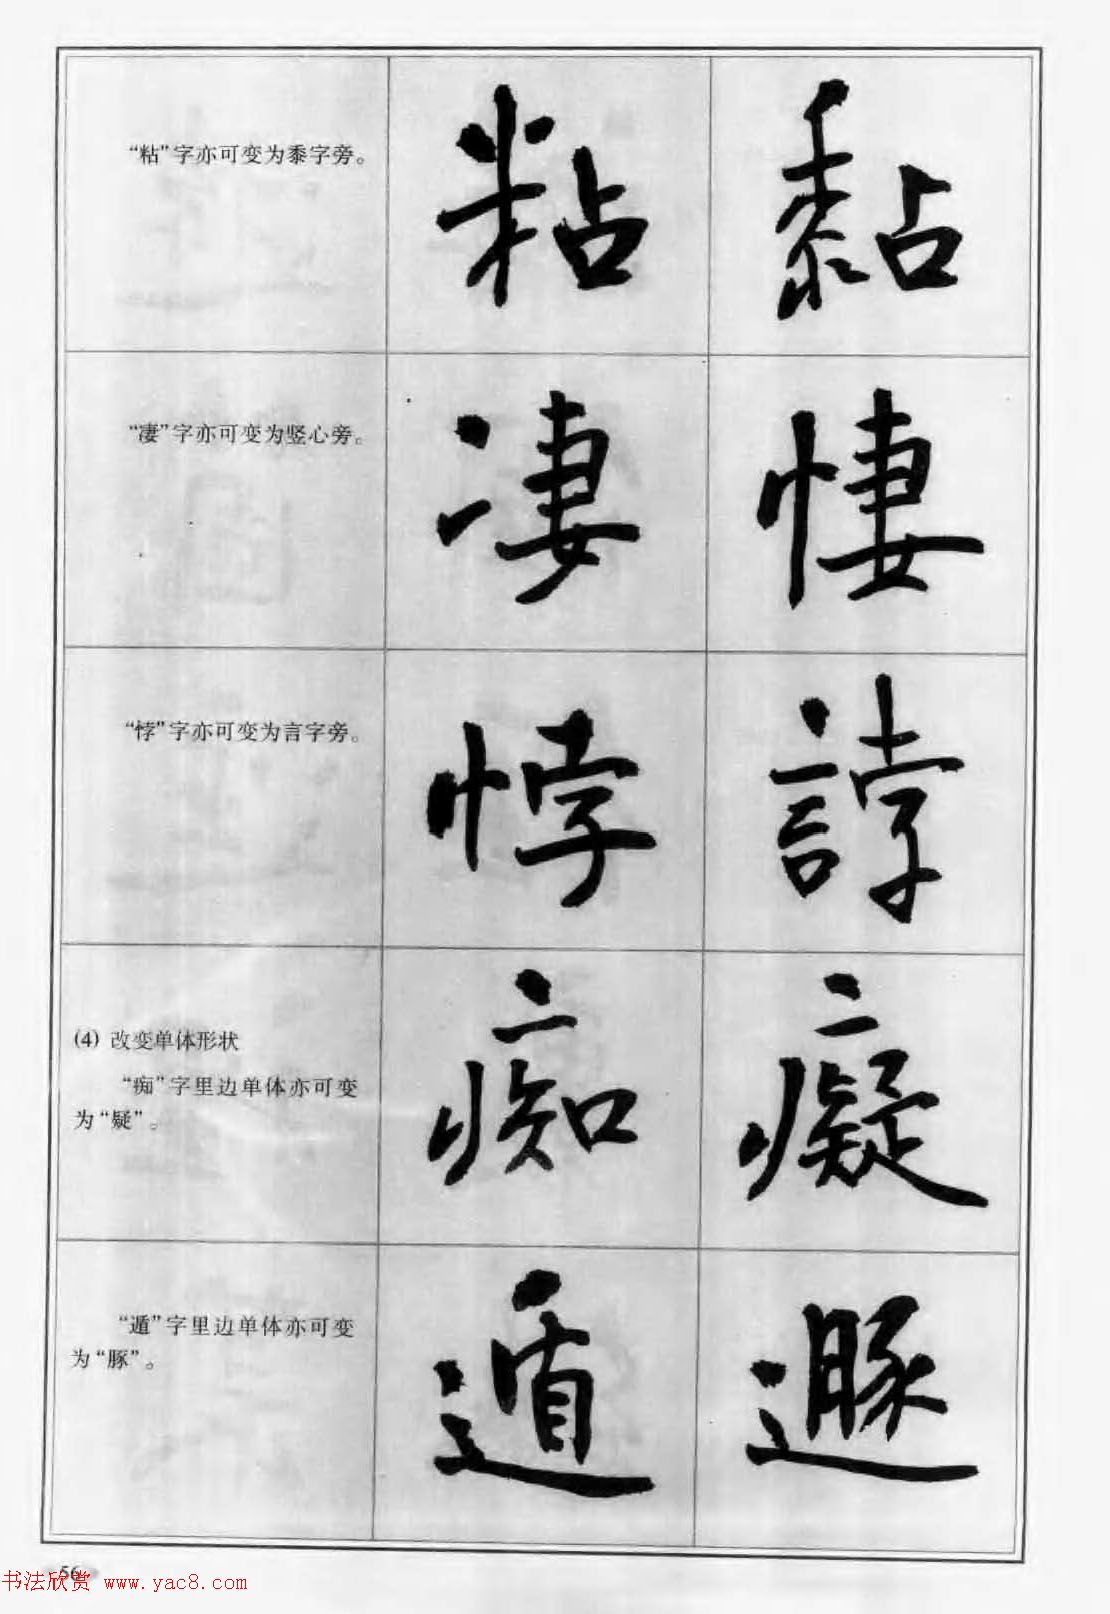 “粘”字亦可变为黍字旁。
粘 黏
“凄”字亦可变为竖心旁。
凄 悽
“悖”字亦可变为言字旁。
悖 誖
(4) 改变单体形状
“痴”字里边单体亦可变
为“疑”。
痴 癡
“遁”字里边单体亦可变
为“豚”。
遁 遯
56
书法欣赏 www.yac8.com